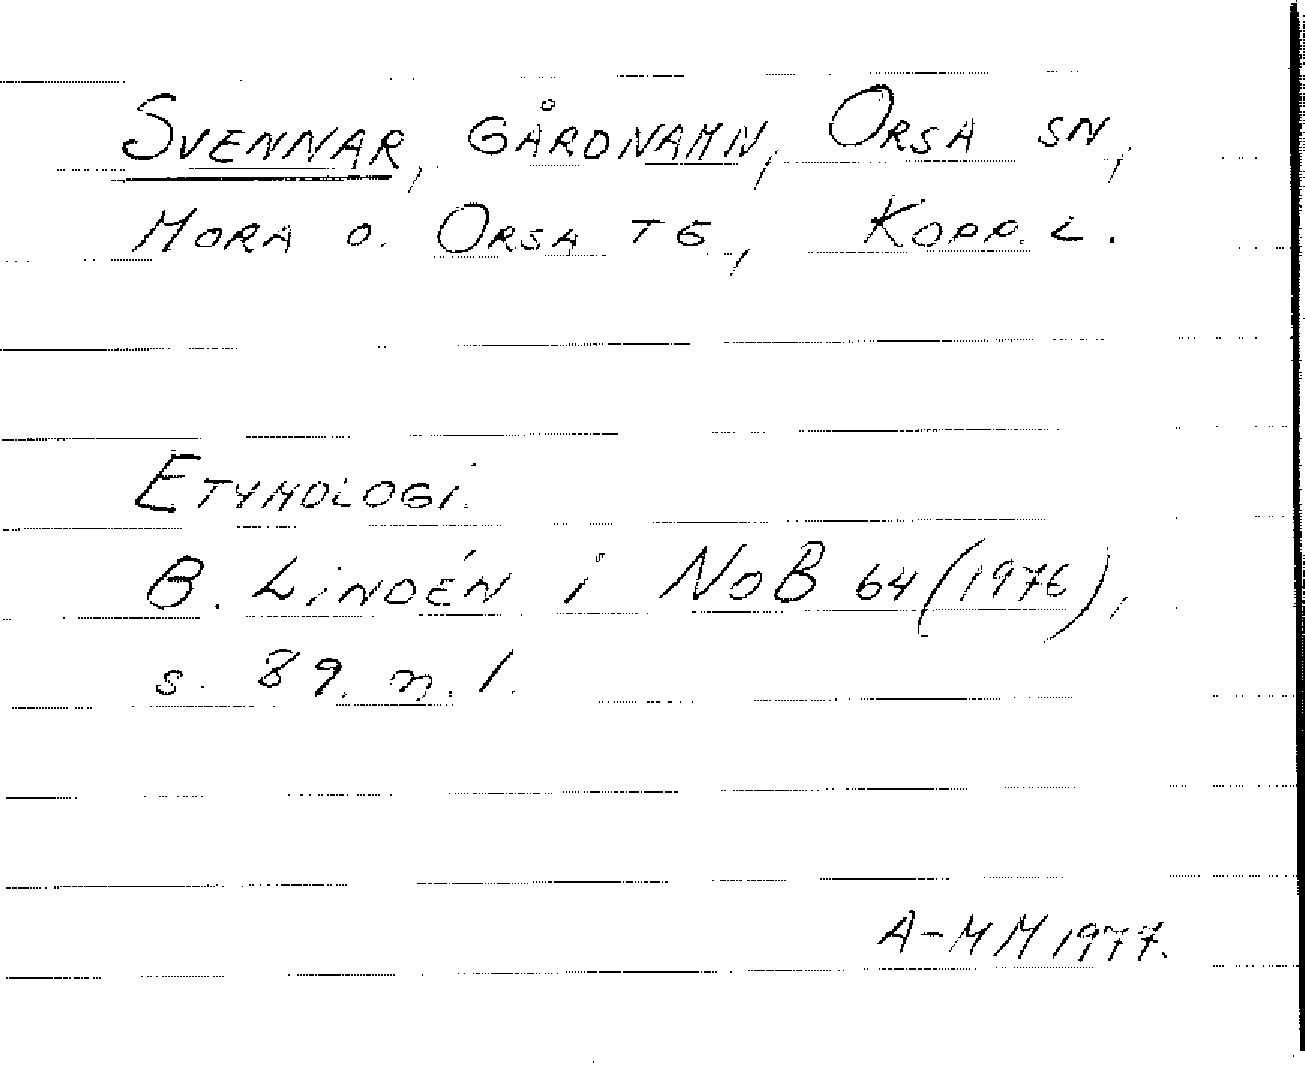 SVENNAR, GÅRDNAMN, ORSA SN,
MORA O. ORSA TG., KOPP. L.
ETYMOLOGI.
B. LINDÉN i NoB 64 (1976),
s. 89. n. 1.
A-MM 1977.